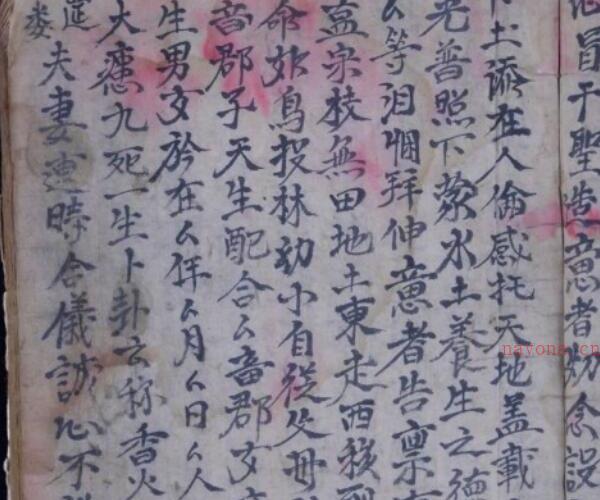 冒干聖造意者切念設
卜土添在人倫感托天地盖載
光普照下蒙水土養生之德
厶等泪悃拜伸意者告禀
盖宗枝無田地土東走西移
命如鳥投林幼小自從父母
音郡子天生配合厶音郡女
生男女於在厶年厶月厶日厶人
大癒九死一生卜卦云称香火
娄夫妻運時合儀誠心不
nayona.cn